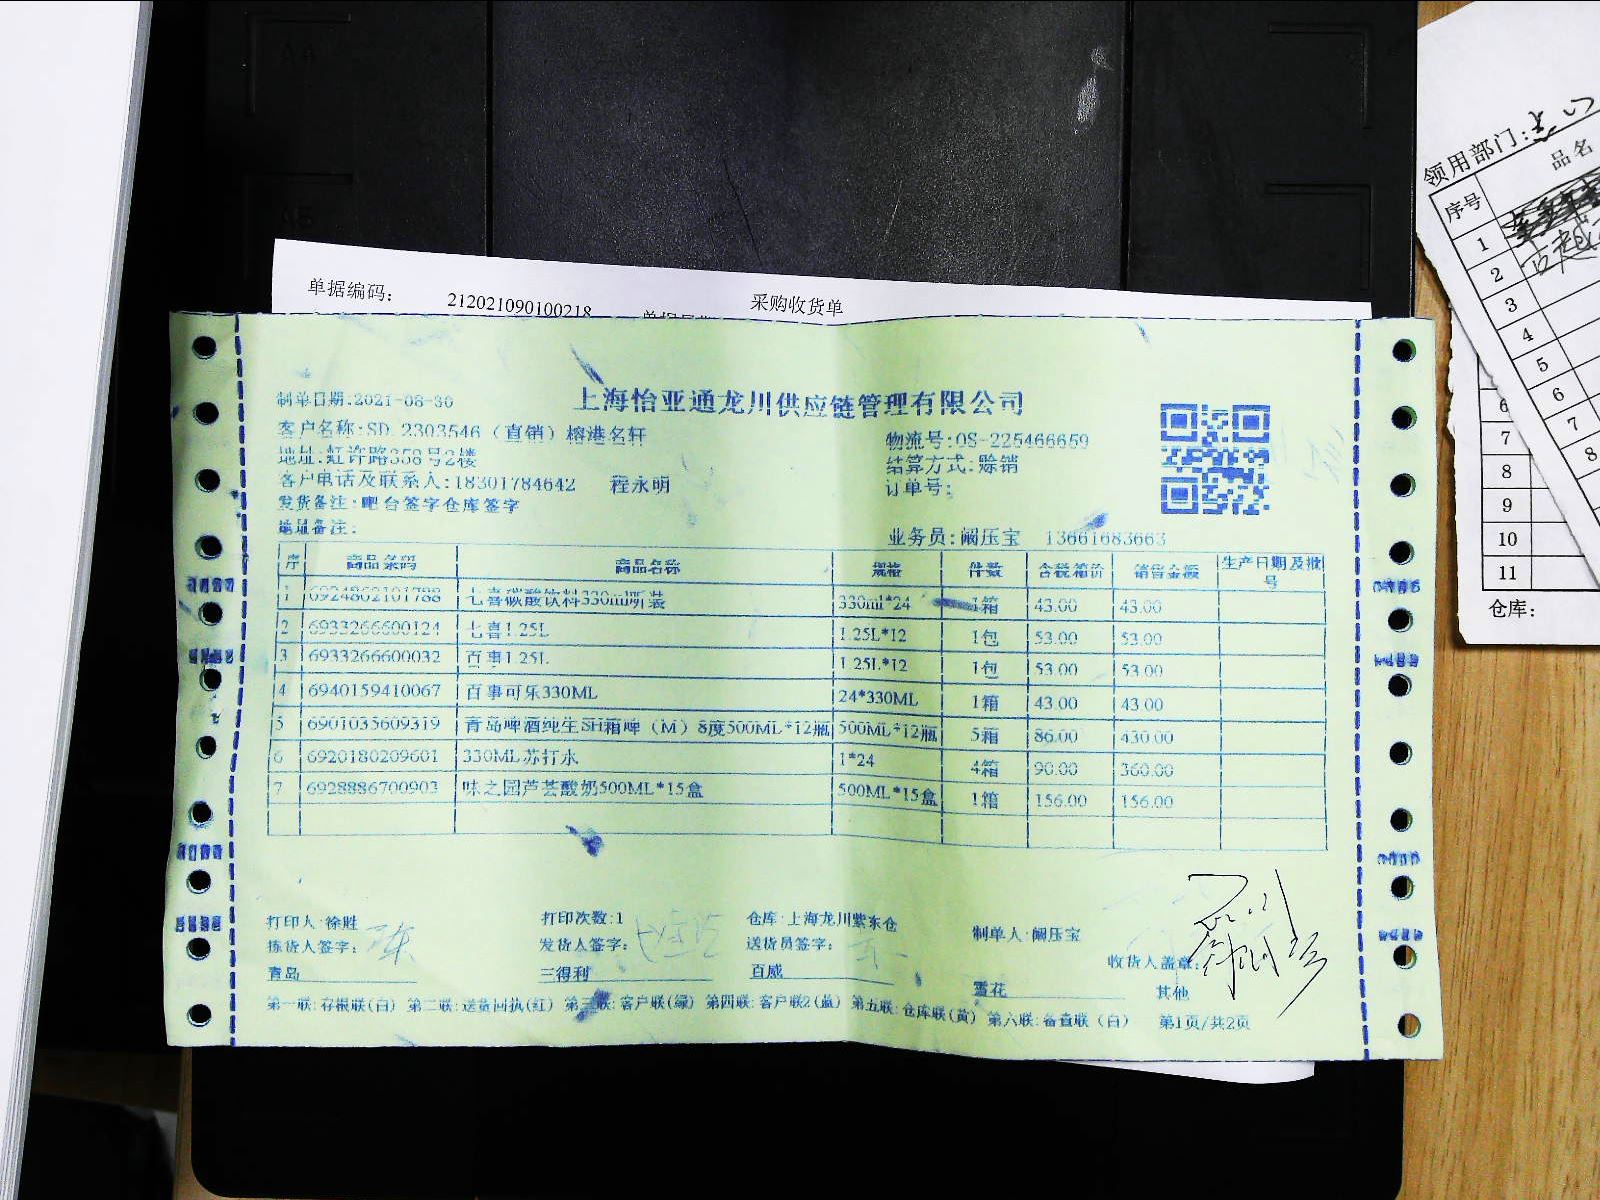 单据编码: 212021090100218 采购收货单
制单日期:2021-08-30 上海怡亚通龙川供应链管理有限公司
客户名称:SD 2303546（直销）榕港名轩 物流号:OS-225466659
地址:虹许路358号2楼 结算方式:赊销
客户电话及联系人:18301784642 程永明 订单号:
发货备注:吧台签字仓库签字
地址备注: 业务员:阚压宝 13661683663
序 商品条码 商品名称 规格 件数 含税箱价 销售金额 生产日期及批号
1 6924862101788 七喜碳酸饮料330ml听装 330ml*24 1箱 43.00 43.00
2 6933266600124 七喜1.25L 1.25L*12 1包 53.00 53.00
3 6933266600032 百事1.25L 1.25L*12 1包 53.00 53.00
4 6940159410067 百事可乐330ML 24*330ML 1箱 43.00 43.00
5 6901035609319 青岛啤酒纯生SH箱啤（M）8度500ML*12瓶 500ML*12瓶 5箱 86.00 430.00
6 6920180209601 330ML苏打水 1*24 4箱 90.00 360.00
7 6928886700903 味之园芦荟酸奶500ML*15盒 500ML*15盒 1箱 156.00 156.00
打印人:徐胜 打印次数:1 仓库:上海龙川紫东仓 制单人:阚压宝
拣货人签字: 发货人签字: 送货员签字: 收货人盖章:
青岛 三得利 百威 雪花 其他
第一联:存根联(白) 第二联:送货回执(红) 第三联:客户联(绿) 第四联:客户联2(蓝) 第五联:仓库联(黄) 第六联:备查联（白） 第1页/共2页
领用部门:
序号 品名
1
2
3
4
5
6
7
8
6
7
8
9
10
11
仓库: